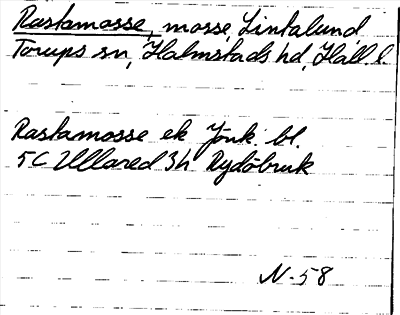 Rastamosse, mosse, Lintalund,
Torups sn, Halmstads hd, Hall. l
Rastamosse ek Jönk. bl.
5C Ullared 3h Rydöbruk
N-58